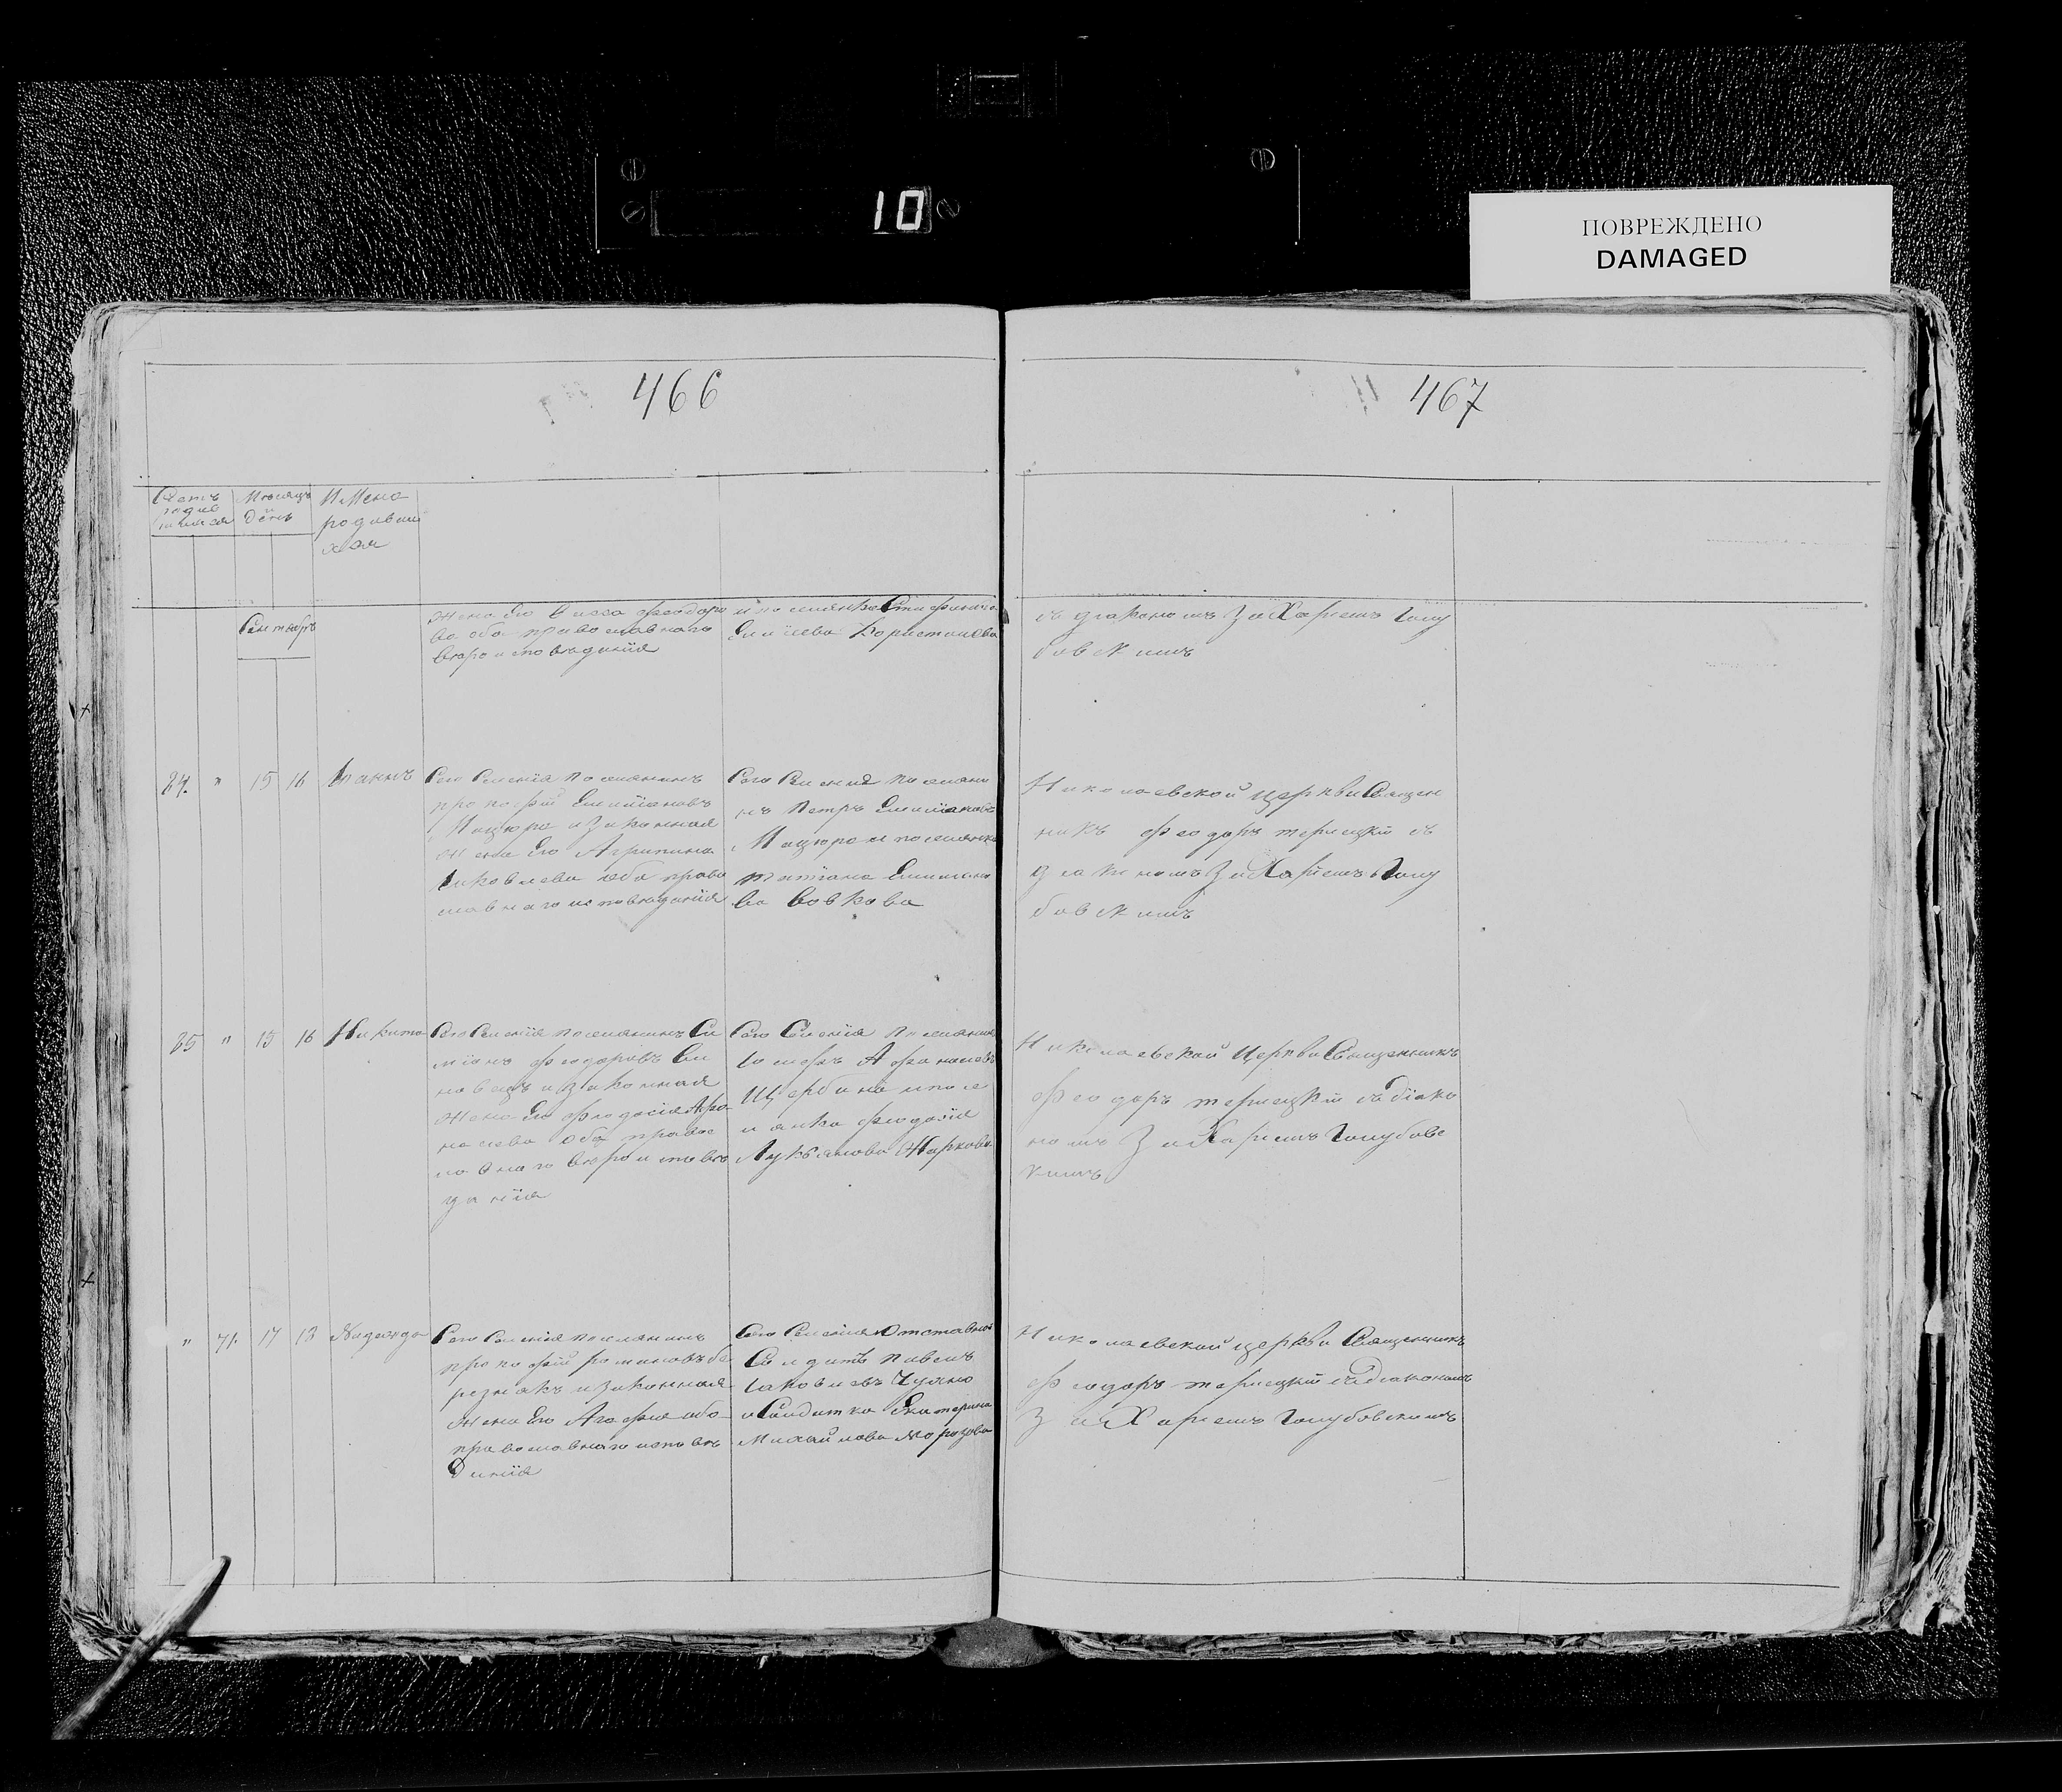 10
ПОВРЕЖДЕНО
DAMAGED
466
467
Счетъ
родив
шихся
Мѣсяцъ
день
Имена
родивши
хся
Сентябрь
жена Его Васса феодоро
ва оба православнаго
вероисповѣданія
и поселянка Стефанида
Борисполева
съ діакономъ Захаріемъ Голу
бовскимъ
84. " 15 16 Іоаннъ
Сего Селенія поселянинъ
прокофій Емиліановъ
Мацюра и Законная
жена Его Агрипина
Іаковлева оба право
славнаго исповѣданія
Сего Селенія поселяни
нъ Петръ Емиліановъ
Мацюра и поселянка
татіана Емилiано
ва Вовкова
Николаевской церкви Священ
никъ феодоръ терлецкій съ
діакономъ Захаріемъ Голу
бовскимъ
85 " 15 16 Никита
Сего Селенія поселянинъ Си
міонъ феодоровъ
и Законная
жена Его феодосія Афа
насіева оба правос
лавнаго вероисповѣ
данія
Сего Селенія поселянинъ
Іосифъ Афанасіевъ
Щербина и посе
лянка феодосія
Лукьянова Жаркова
Николаевской Церкви Священникъ
феодоръ терлецкій съ діако
номъ Захаріемъ Голубовс
кимъ
" 71. 17 18 Надежда
Сего Селенія поселянинъ
прокофій романовъ бе
резнякъ и Законная
жена Его Агафія оба
православнаго исповѣ
данія
Сего Селенія Отставной
Солдатъ павелъ
Іаковлевъ
и Солдатка Екатерина
Михайлова Морозова
Николаевской церкви Священникъ
феодоръ терлецкій съ діакономъ
Захаріемъ Голубовскимъ